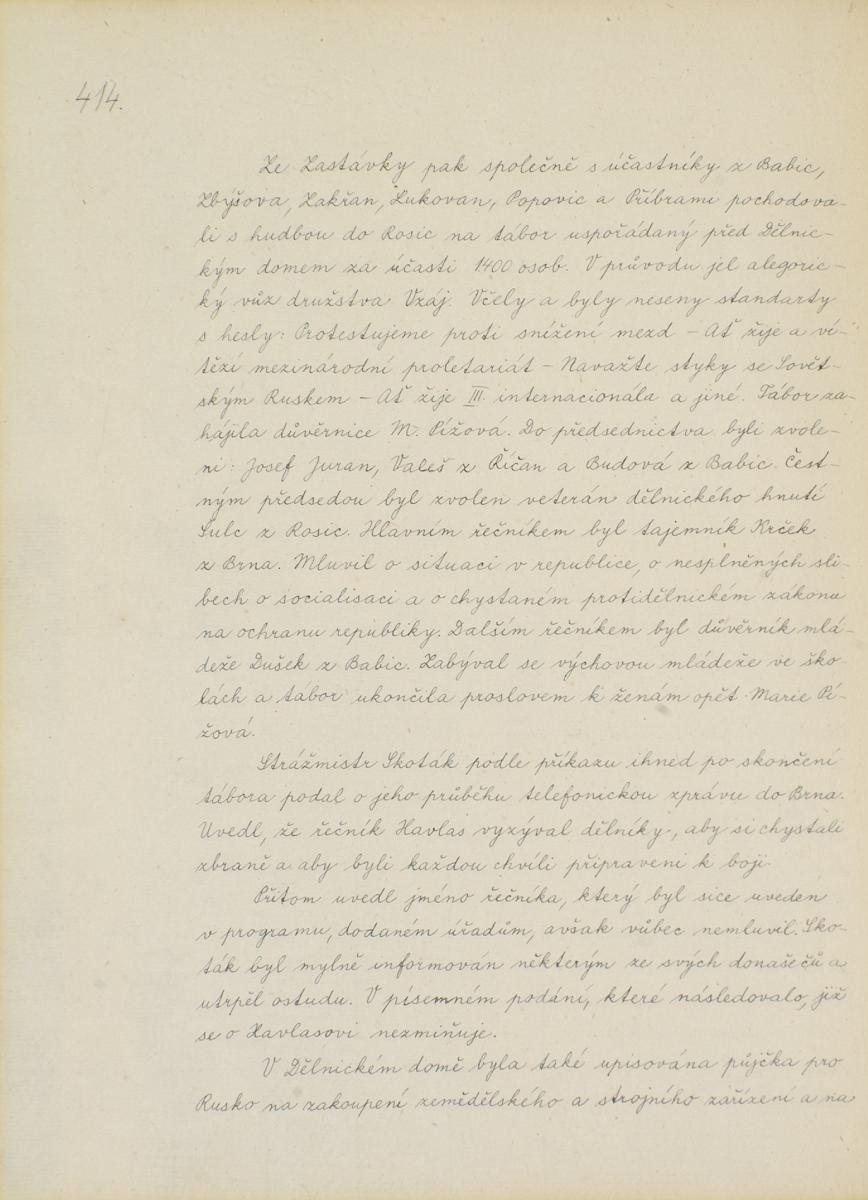 414.
Ze Zastávky pak společně s účastníky z Babic,
Zbýšova, Zakřan, Lukovan, Popovic a Příbrami pochodova-
li s hudbou do Rosic na tábor uspořádaný před Dělnic-
kým domem za účasti 1400 osob. V průvodu jel alegoric-
ký vůz družstva Vzáj. Včely a byly neseny standarty
s hesly: Protestujeme proti snížení mezd - Ať žije a ví-
tězí mezinárodní proletariát - Navažte styky se Sovět-
ským Ruskem - Ať žije III. internacionála a jiné. Tábor za-
hájila důvěrnice M. Pížová. Do předsednictva byli zvole-
ni: Josef Juran, Valeš z Říčan a Budová z Babic. Čest-
ným předsedou byl zvolen veterán dělnického hnutí
Šulc z Rosic. Hlavním řečníkem byl tajemník Krček
z Brna. Mluvil o situaci v republice, o nesplněných sli-
bech o socialisaci a o chystaném protidělnickém zákonu
na ochranu republiky. Dalším řečníkem byl důvěrník mlá-
deže Dušek z Babic. Zabýval se výchovou mládeže ve ško-
lách a tábor ukončila proslovem k ženám opět Marie Pí-
žová.
Strážmistr Skoták podle příkazu ihned po skončení
tábora podal o jeho průběhu telefonickou zprávu do Brna.
Uvedl, že řečník Havlas vyzýval dělníky, aby si chystali
zbraně a aby byli každou chvíli připraveni k boji.
Přitom uvedl jméno řečníka, který byl sice uveden
v programu, dodaném úřadům, avšak vůbec nemluvil. Sko-
ták byl mylně informován některým ze svých donašečů a
utrpěl ostudu. V písemném podání, které následovalo, již
se o Havlasovi nezmiňuje.
V Dělnickém domě byla také upisována půjčka pro
Rusko na zakoupení zemědělského a strojního zařízení a na